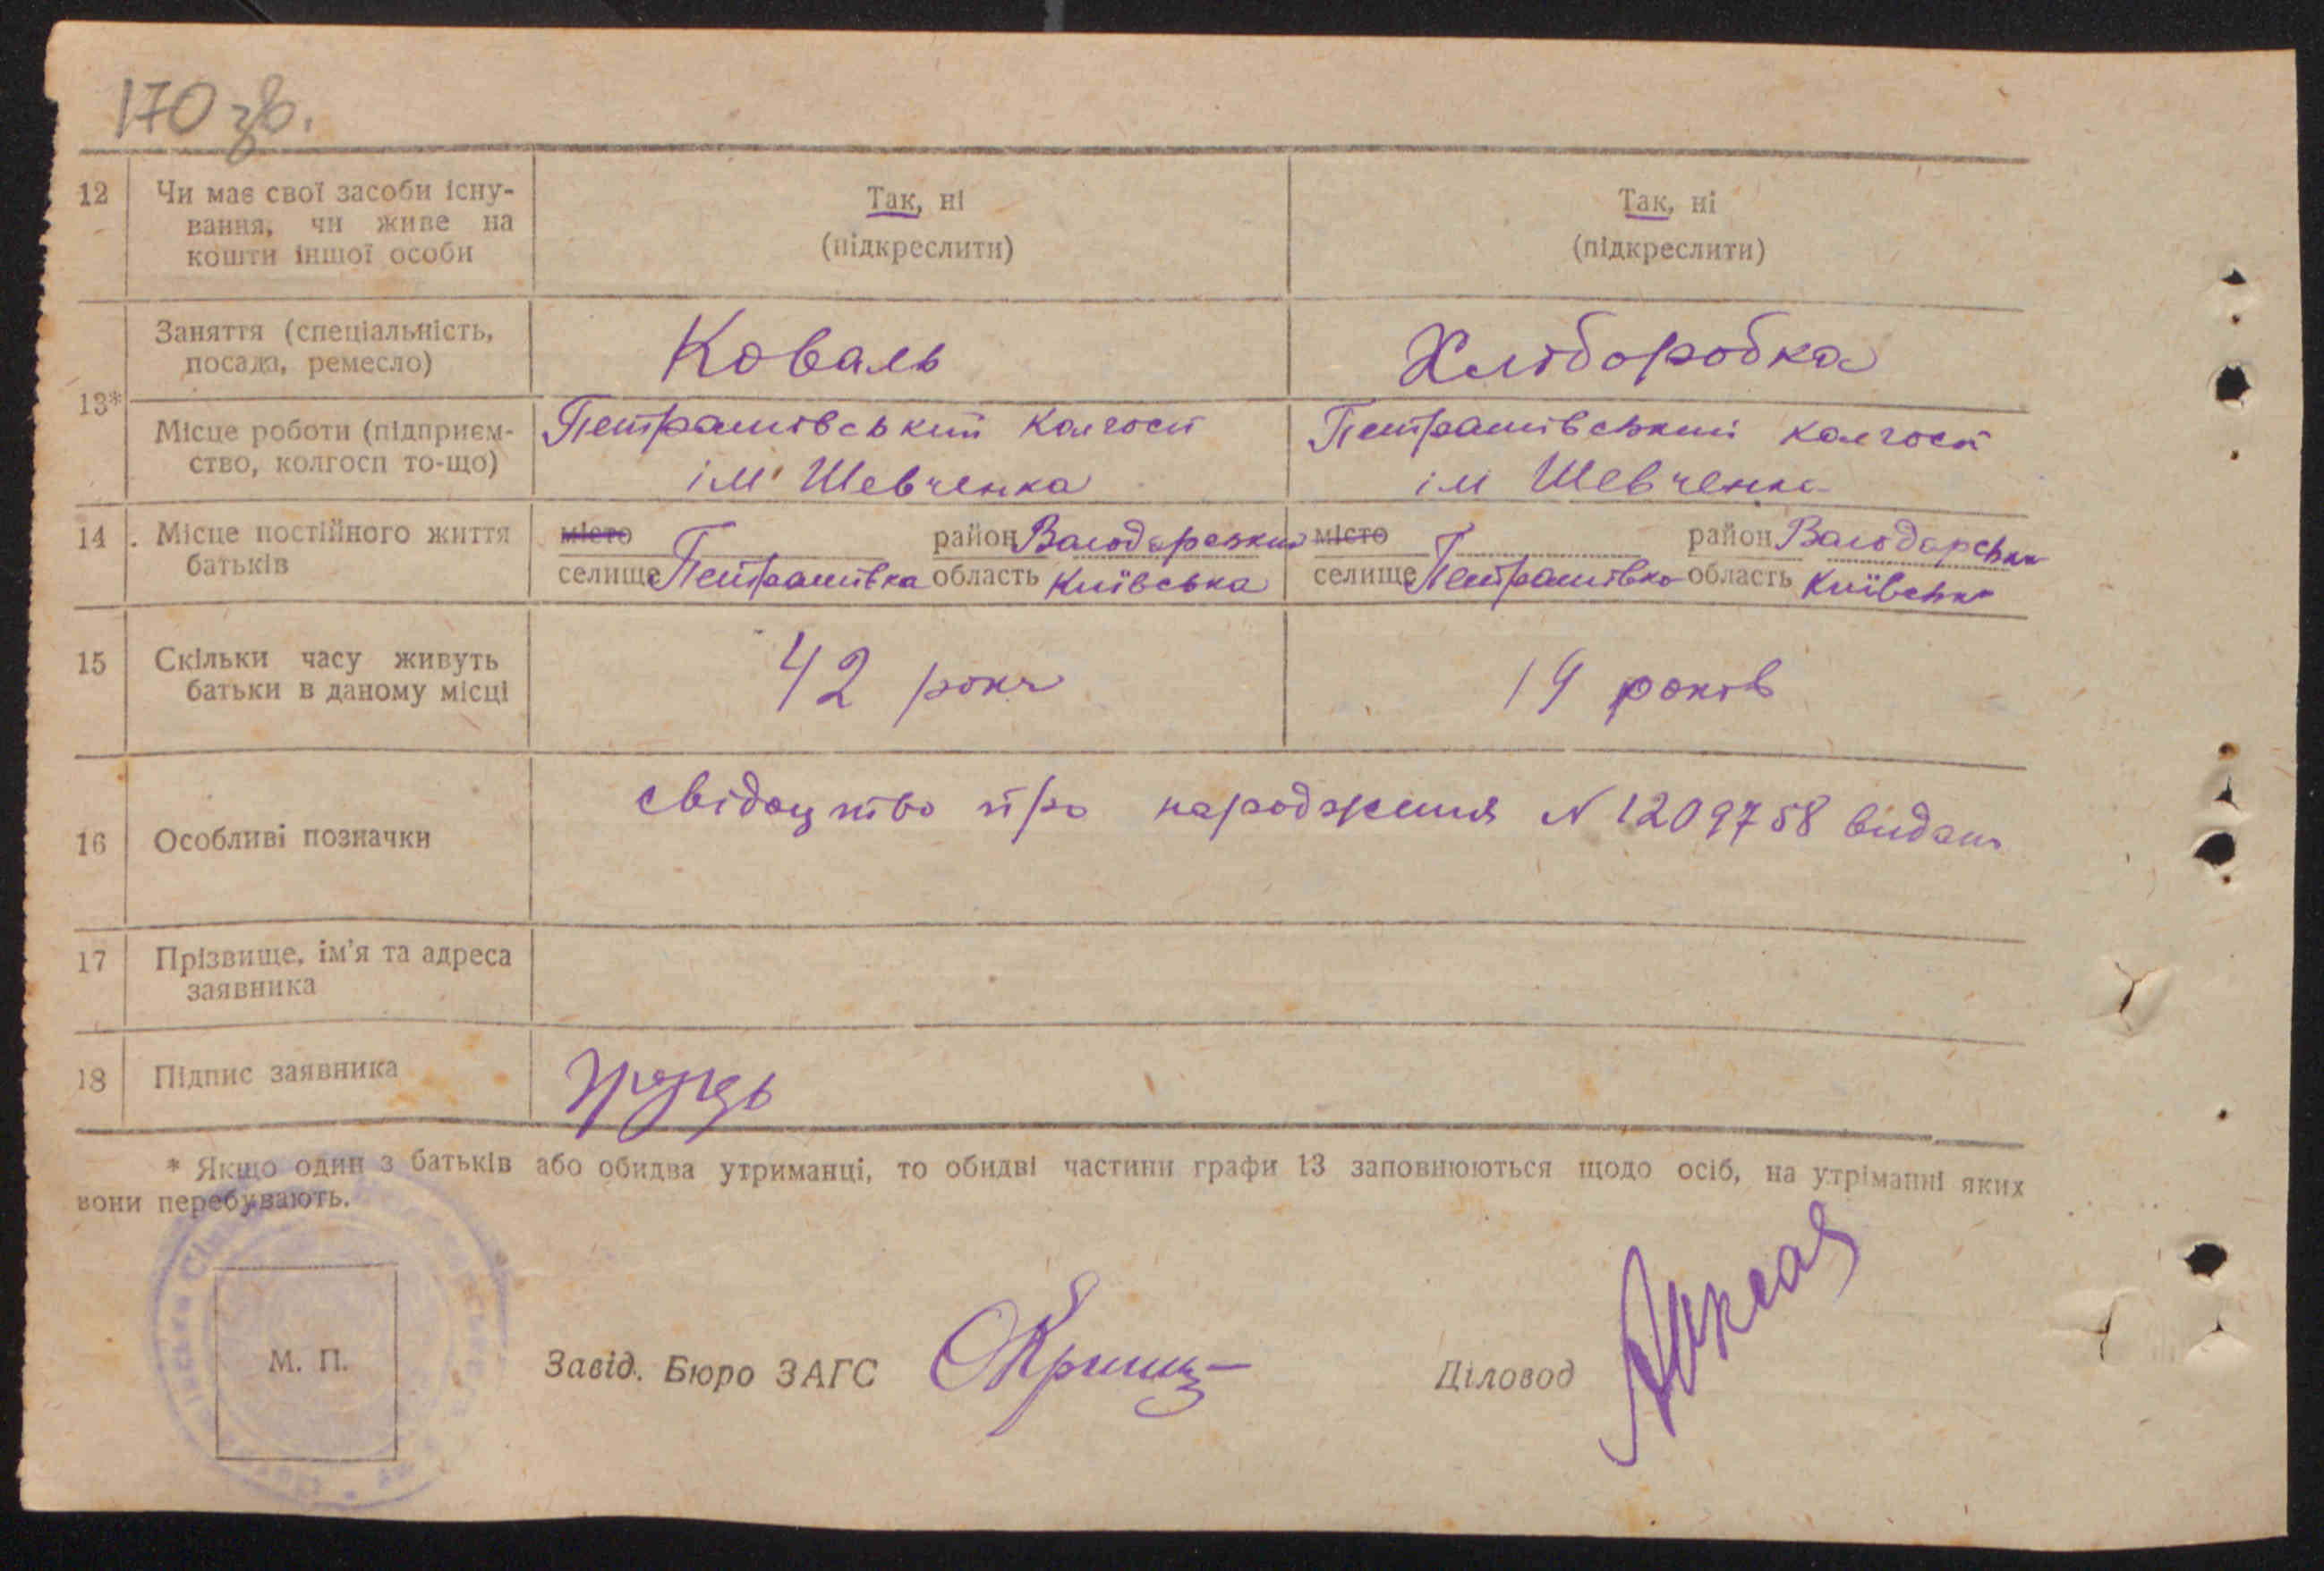 170 зв.
12 Чи має свої засоби існу- Так, ні Так, ні
вання, чи живе на (підкреслити) (підкреслити)
кошти іншої особи
13* Заняття (спеціальність, Коваль Хліборобка
посада, ремесло)
Місце роботи (підприєм- Петрашівський колгосп Петрашівський колгосп
ство, колгосп то-що) ім Шевченка ім Шевченка
14 Місце постійного життя місто район Володарський місто район Володарськ
батьків селище Петрашівка область Київська селище Петрашівка область Київська
15 Скільки часу живуть 42 роки 19 років
батьки в даному місці
16 Особливі позначки свідоцтво про народження N 1209758 видано
17 Прізвище, ім'я та адреса
заявника
18 Підпис заявника
* Якщо один з батьків або обидва утриманці, то обидві частини графи 13 заповнюються щодо осіб, на утріманні яких
вони перебувають.
М. П. Завід. Бюро ЗАГС Діловод